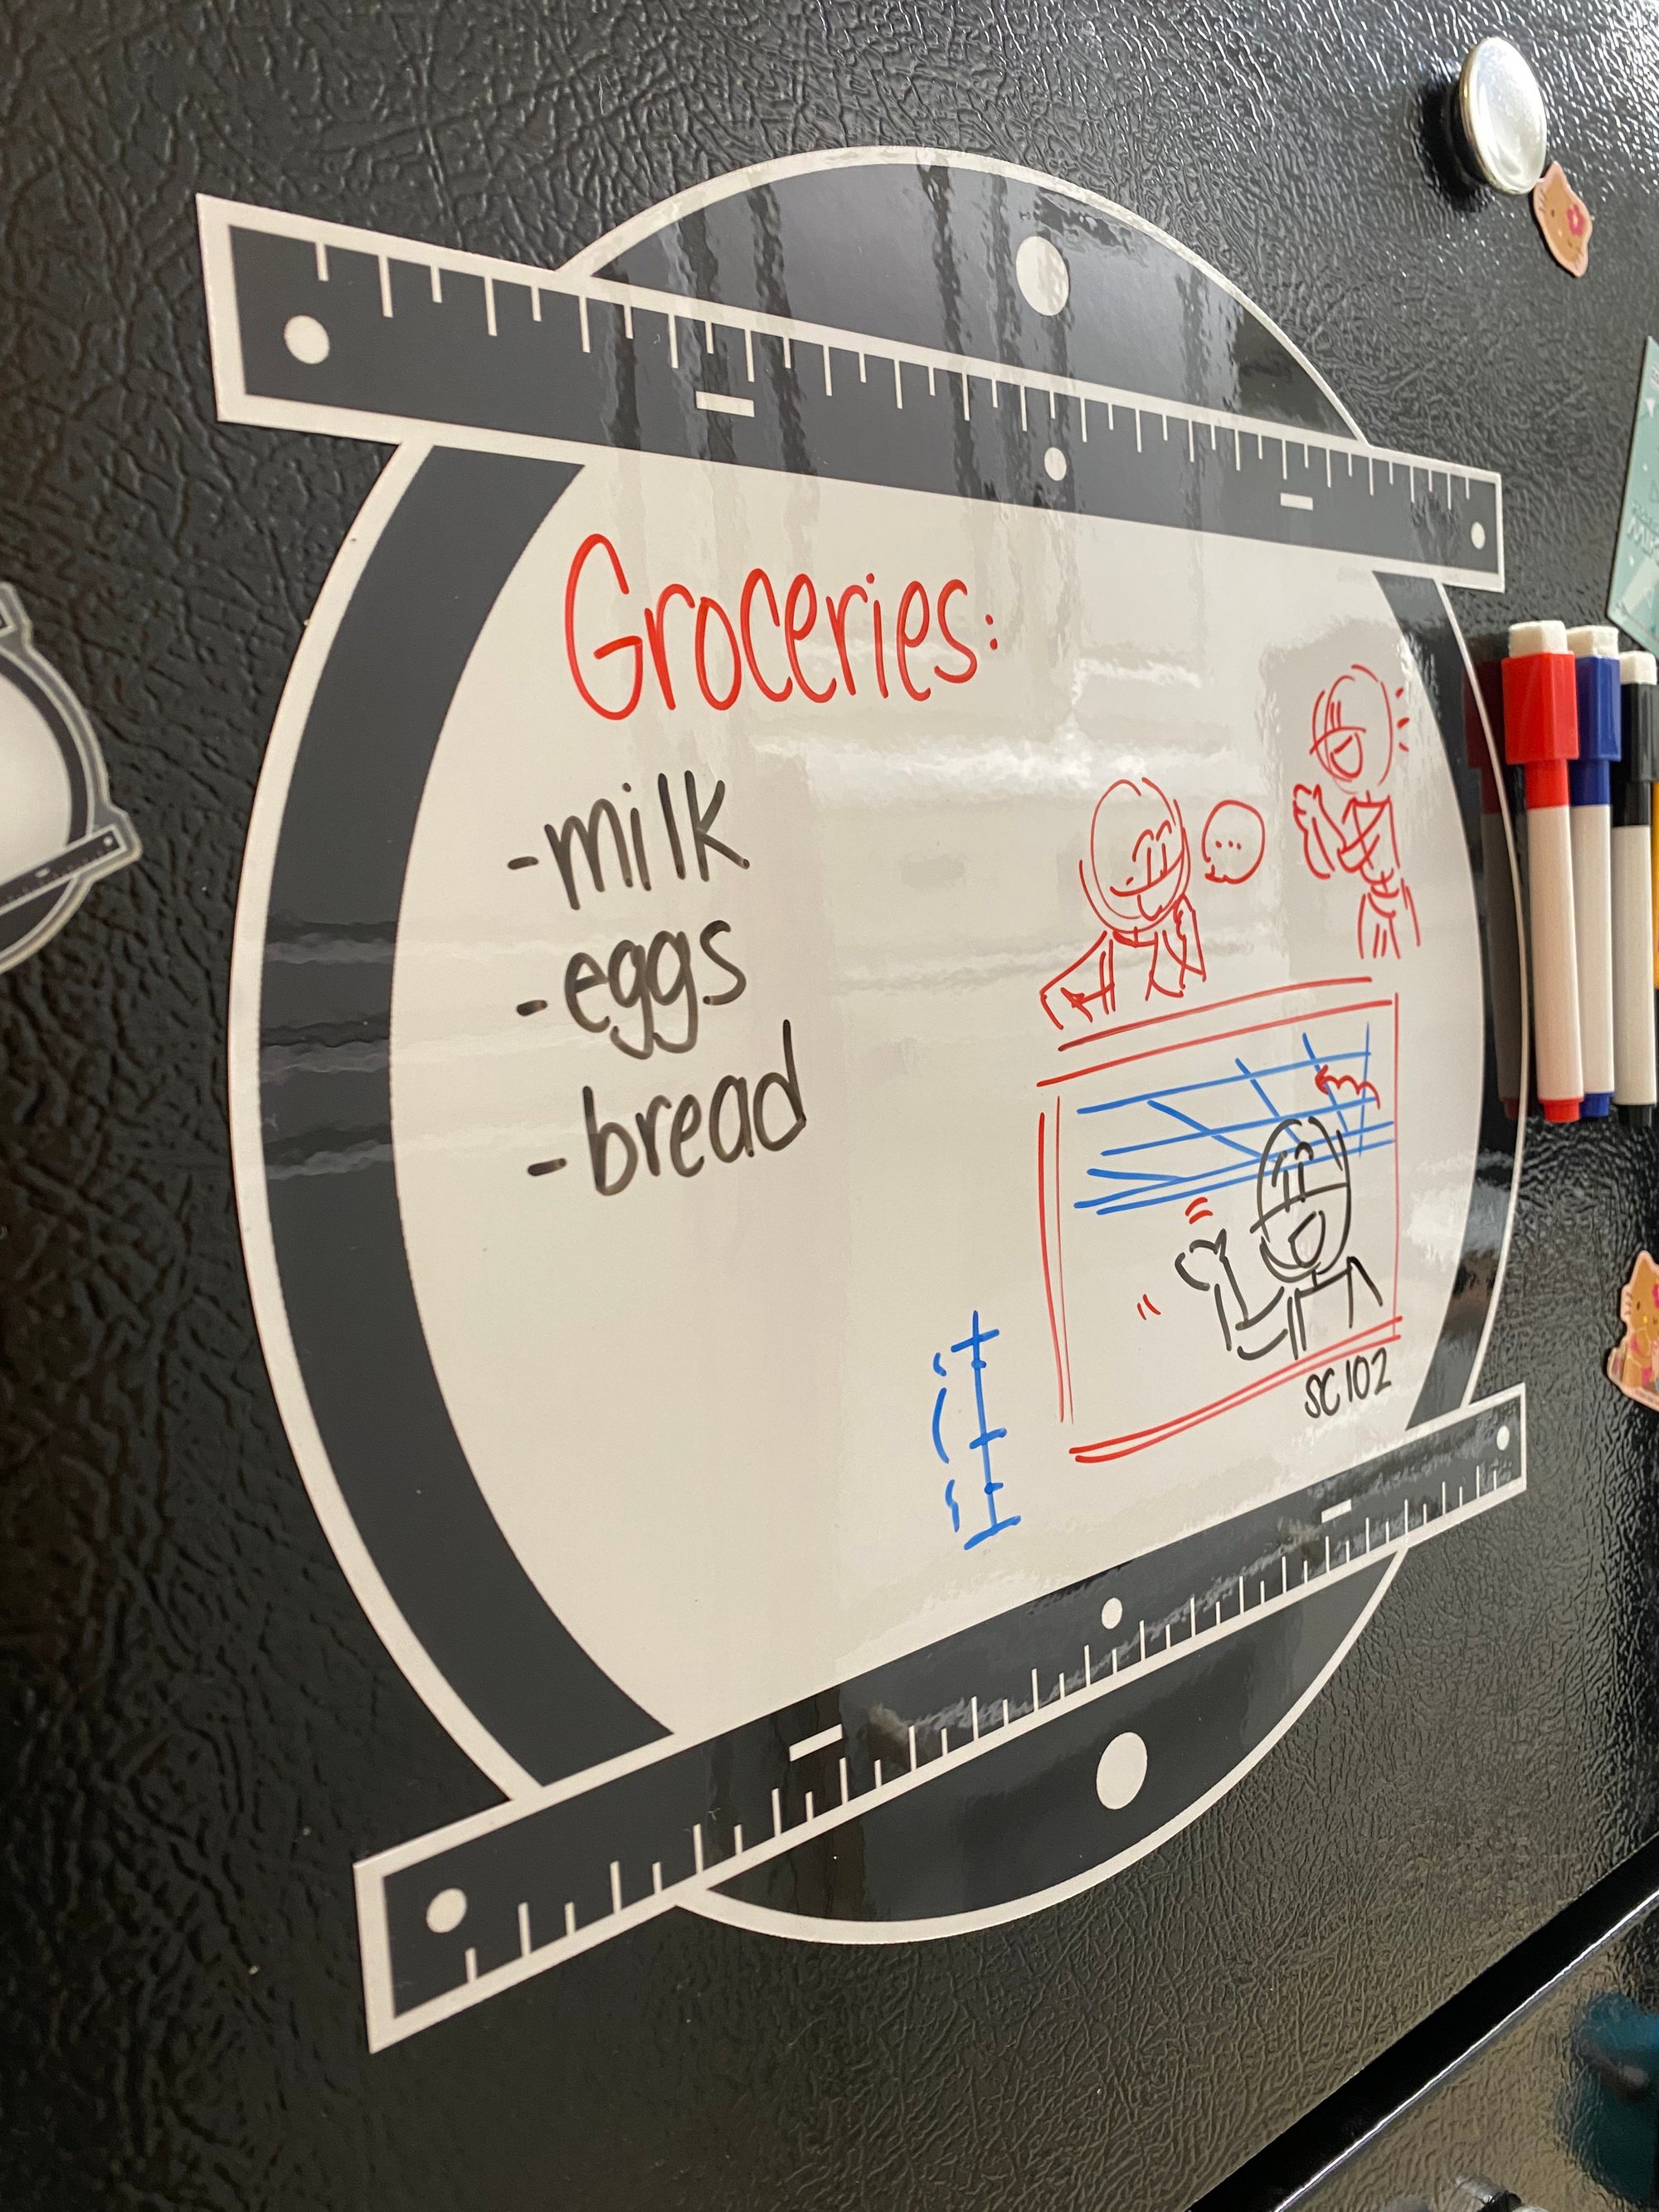 Groceries:
-milk
-eggs
-bread
...
SC102